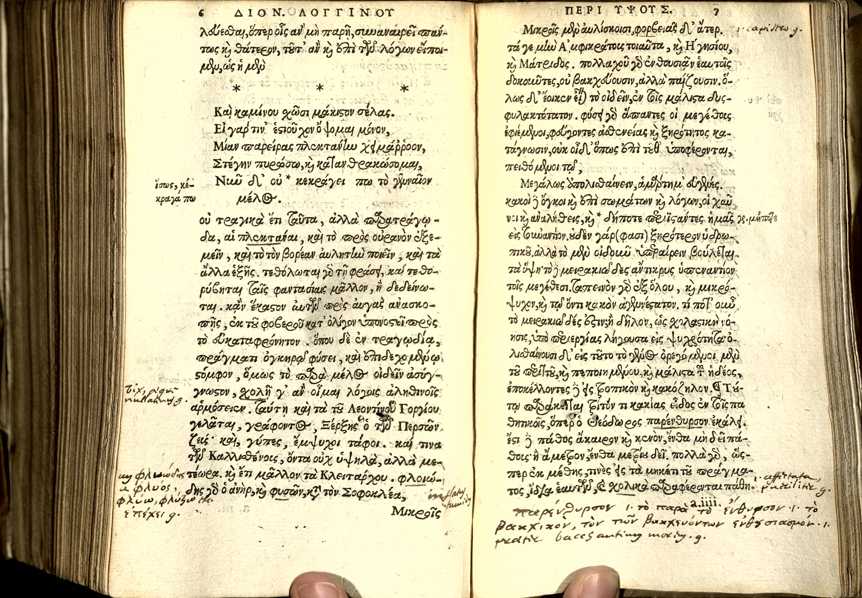 6 ΔΙΟΝ. ΛΟΓΓΙΝΟΥ
λύεσθαι, ὅπερ οἷς ἂν μὴ παρῇ, συναναιρεῖ πάν-
τως καὶ θάτερον, τοῦτ' ἂν καὶ ἐπὶ τῶν λόγων εἴποι-
μεν, ὡς ἡ μὲν
* * *
Καὶ καμίνου χῶσι μάκιστον σέλας.
Εἰ γάρ τιν' ἑστιοῦχον ὄψομαι μόνον,
Μίαν παρείρας πλεκτάνην χειμάρροον,
Στέγην πυρώσω, καὶ κατανθρακώσομαι,
Νῦν δ' οὐ * κεκράγει πω τὸ γενναῖον
μέλος.
οὐ τραγικὰ ἔτι ταῦτα, ἀλλὰ παρατράγῳ-
δα, αἱ πλεκτάναι, καὶ τὸ πρὸς οὐρανὸν ἐξε-
μεῖν, καὶ τὸ τὸν βορέαν αὐλητὴν ποιεῖν, καὶ τὰ
ἄλλα ἑξῆς. τεθόλωται γὰρ τῇ φράσει, καὶ τεθο-
ρύβηται ταῖς φαντασίαις μᾶλλον, ἢ δεδείνω-
ται. κἂν ἕκαστον αὐτῶν πρὸς αὐγὰς ἀνασκο-
πῇς, ἐκ τοῦ φοβεροῦ κατ' ὀλίγον ὑπονοστεῖ πρὸς
τὸ εὐκαταφρόνητον. ὅπου δὲ ἐν τραγῳδίᾳ,
πράγματι ὀγκηρῷ φύσει, καὶ ἐπιδεχομένῳ
στόμφον, ὅμως τὸ παρὰ μέλος οἰδεῖν ἀσύγ-
γνωστον, χολῇ γ' ἂν οἶμαι λόγοις ἀληθινοῖς
ἁρμόσειεν. ταύτῃ καὶ τὰ τοῦ Λεοντίνου Γοργίου
γελᾶται, γράφοντος, Ξέρξης ὁ τῶν Περσῶν
ζεύς· καὶ, γύπες, ἔμψυχοι τάφοι. καί τινα
τῶν Καλλισθένους, ὄντα οὐχ ὑψηλὰ, ἀλλὰ με-
τέωρα. καὶ ἔτι μᾶλλον τὰ Κλειτάρχου. φλοιώ-
δης γὰρ ὁ ἀνὴρ, καὶ φυσῶν, κατὰ τὸν Σοφοκλέα,
Μικροῖς
ἴσως, κέ-
κραγά πω
ΠΕΡΙ ΥΨΟΥΣ. 7
Μικροῖς μὲν αὐλίσκοισι, φορβειᾶς δ' ἄτερ.
τά γε μὴν Ἀμφικράτους τοιαῦτα, καὶ Ἡγησίου,
καὶ Μάτριδος. πολλαχοῦ γὰρ ἐνθουσιᾶν ἑαυτοῖς
δοκοῦντες, οὐ βακχεύουσιν, ἀλλὰ παίζουσιν. ὅ-
λως δ' ἔοικεν εἶναι τὸ οἰδεῖν, ἐν τοῖς μάλιστα δυσ-
φυλακτότατον. φύσει γὰρ ἅπαντες οἱ μεγέθους
ἐφιέμενοι, φεύγοντες ἀσθενείας καὶ ξηρότητος κα-
τάγνωσιν, οὐκ οἶδ' ὅπως ἐπὶ τοῦθ' ὑποφέρονται,
πειθόμενοι τῷ,
Μεγάλων ἀπολισθαίνειν, ἁμάρτημ' εὐγενές.
κακοὶ δὲ ὄγκοι καὶ ἐπὶ σωμάτων καὶ λόγων, οἱ χαῦ-
νοι καὶ ἀναλήθεις, καὶ * δήποτε περιϊστάντες ἡμᾶς
εἰς τοὐναντίον. οὐδὲν γάρ (φασι) ξηρότερον ὑδρω-
πικοῦ. ἀλλὰ τὸ μὲν οἰδοῦν ὑπεραίρειν βούλεται
τὰ ὕψη· τὸ δὲ μειρακιῶδες ἄντικρυς ὑπεναντίον
τοῖς μεγέθεσι. ταπεινὸν γὰρ ἐξ ὅλου, καὶ μικρό-
ψυχον, καὶ τῷ ὄντι κακὸν ἀγεννέστατον. τί ποτ' οὖν
τὸ μειρακιῶδές ἐστιν; ἢ δῆλον, ὡς σχολαστικὴ νό-
ησις, ὑπὸ περιεργίας λήγουσα εἰς ψυχρότητα. ὀ-
λισθαίνουσι δ' εἰς τοῦτο τὸ γένος ὀρεγόμενοι μὲν
τοῦ περιττοῦ, καὶ πεποιημένου, καὶ μάλιστα τοῦ ἡδέος,
ἐποκέλλοντες δὲ εἰς ῥοπικὸν καὶ κακόζηλον. Τού-
τῳ παράκειται τρίτον τι κακίας εἶδος ἐν τοῖς πα-
θητικοῖς, ὅπερ ὁ Θεόδωρος παρένθυρσον ἐκάλει.
ἔστι δὲ πάθος ἄκαιρον καὶ κενὸν, ἔνθα μὴ δεῖ πά-
θους· ἢ ἄμετρον, ἔνθα μετρίου δεῖ. πολλὰ γὰρ, ὥσ-
περ ἐκ μέθης, τινὲς εἰς τὰ μηκέτι τοῦ πράγμα-
τος, ἴδια ἑαυτῶν καὶ σχολικὰ παραφέρονται πάθη.
a.iiii.
παρένθυρσον 1. τὸ παρὰ τὸ ἔνθυρσον 1. τὸ
βακχικὸν, τὸν τῶν βακχευόντων ἐνθουσιασμόν. 1.